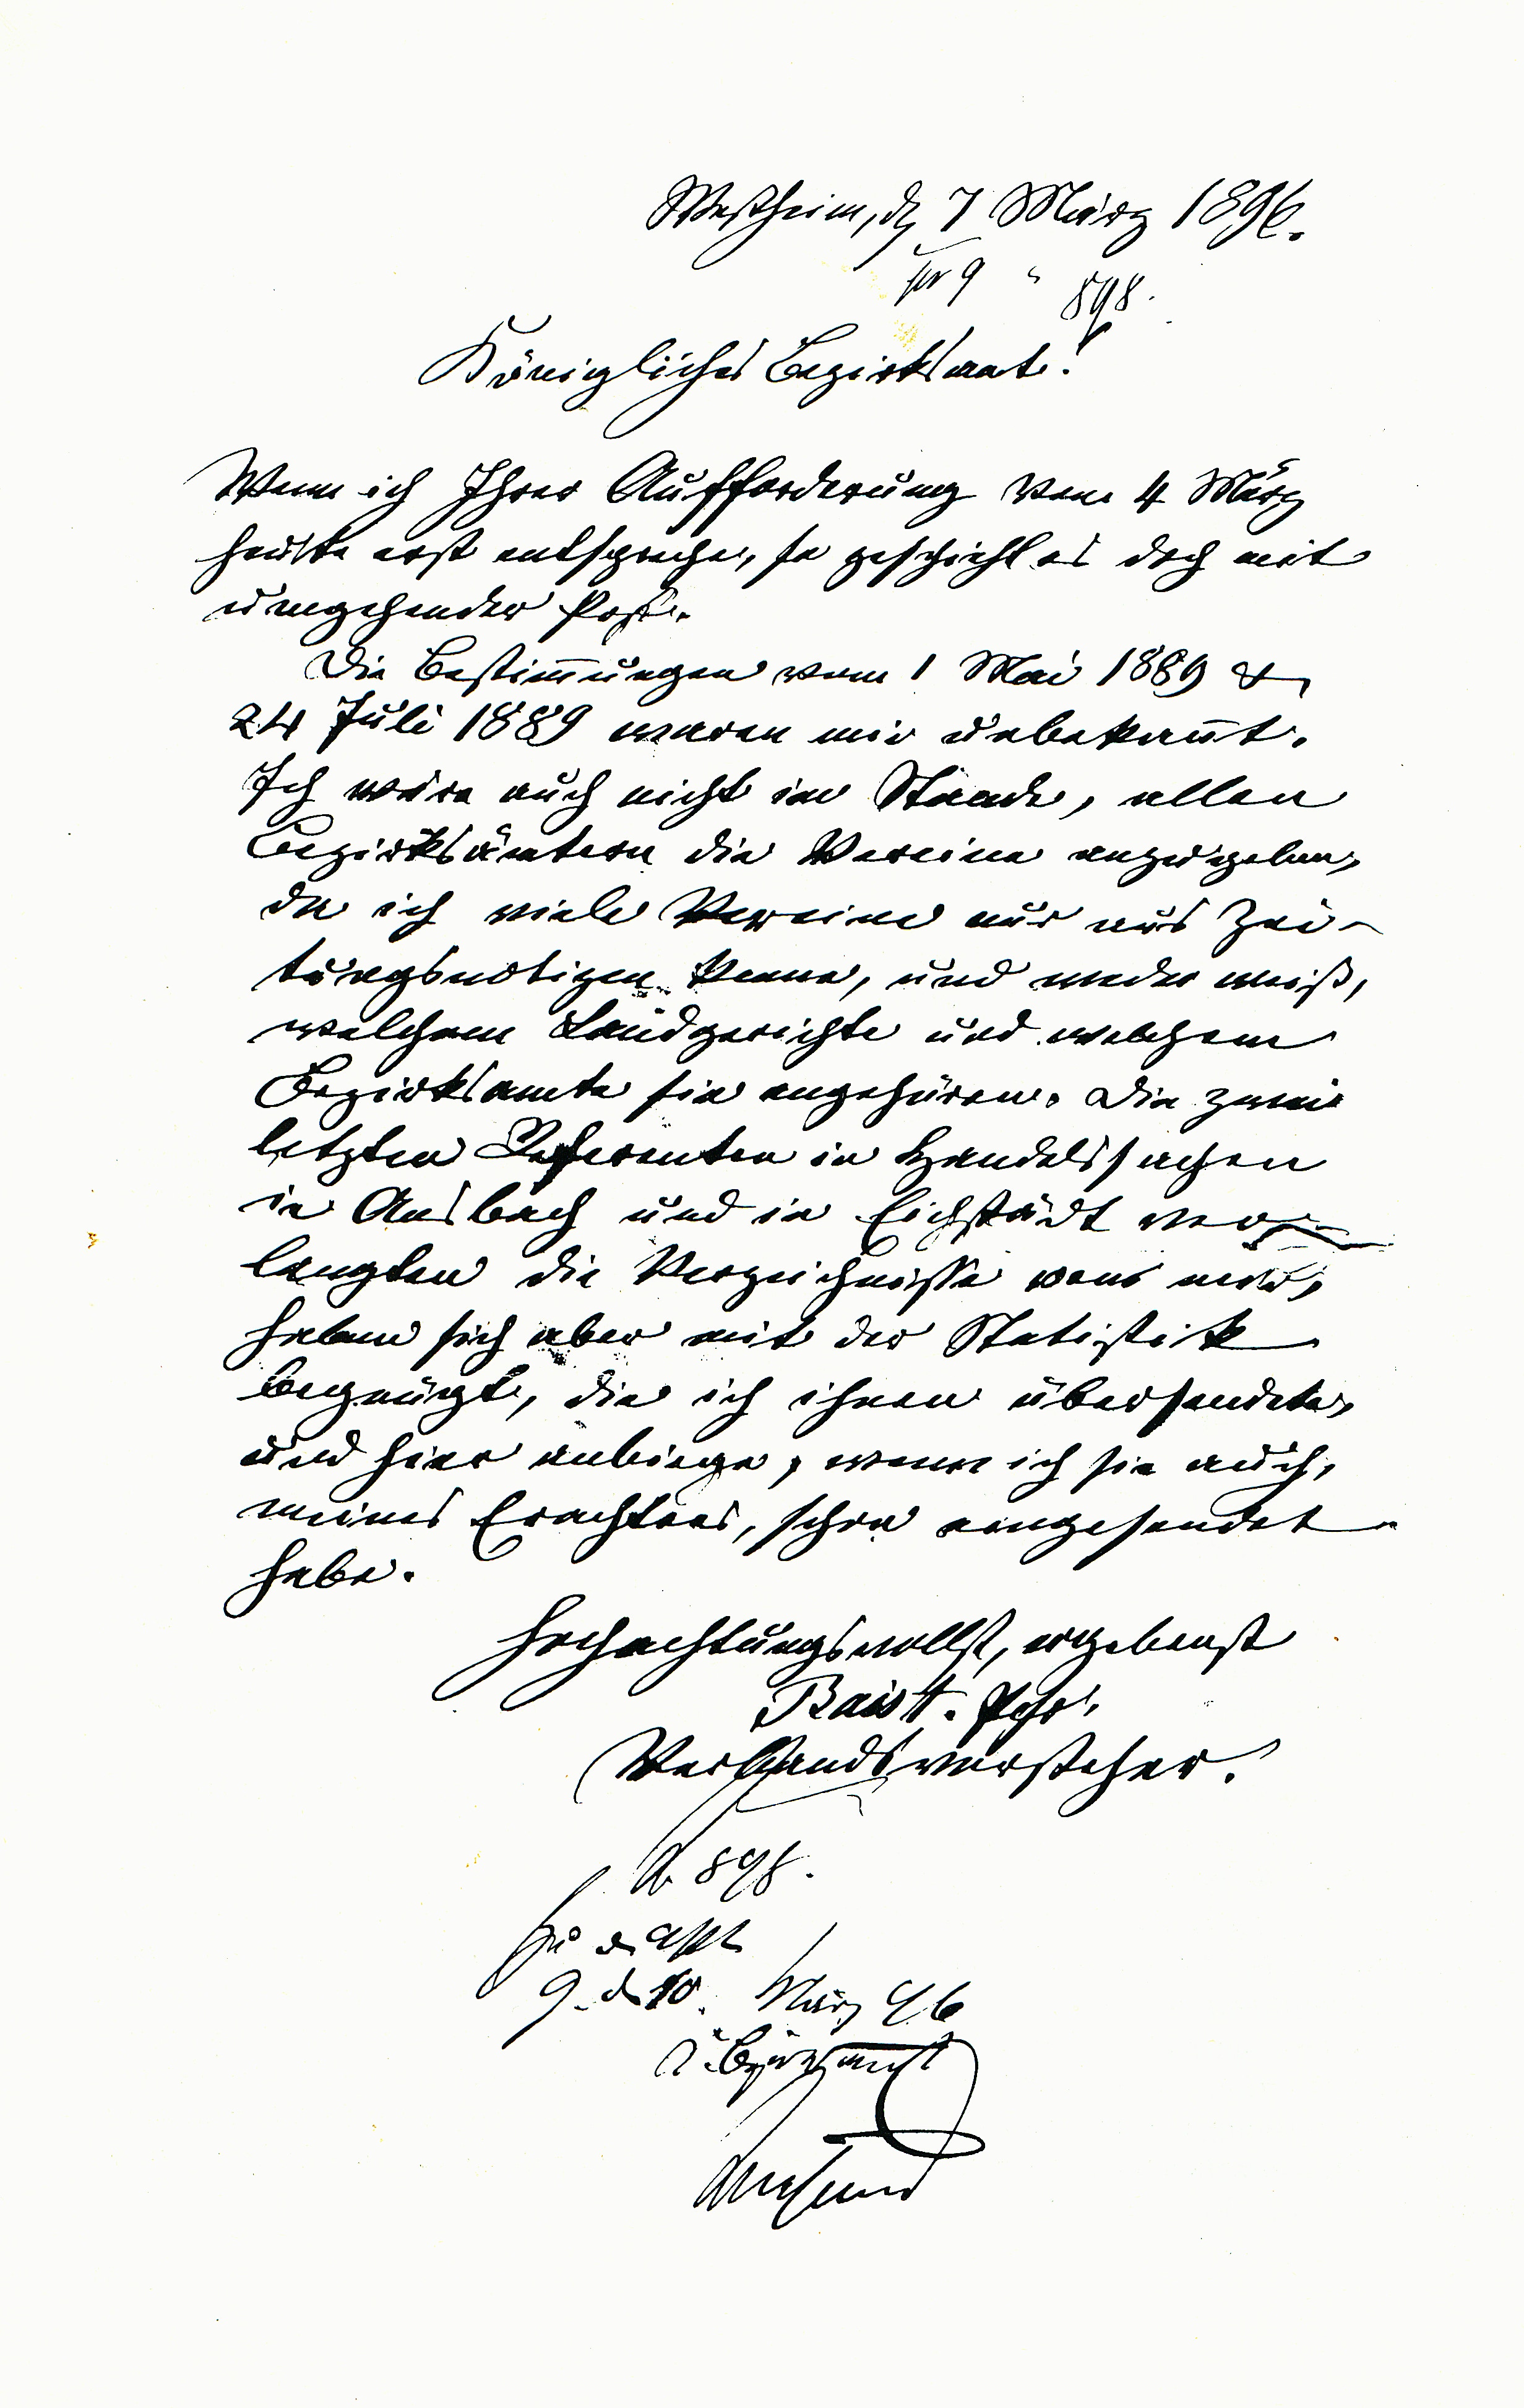 Westheim, d 7 März 1896.
pr 9 " 898.
Königliches Bezirksamt!
Wenn ich Ihrer Aufforderung vom 4 März
heute erst entspreche, so geschieht es doch mit
umgehender Post.
Die Bestim̅ungen vom 1 Mai 1889 &
24 Juli 1889 waren mir unbekan̅t.
Ich wäre auch nicht im Stande, allen
Bezirksämtern die Vereine anzugeben,
da ich viele Vereine nur aus Zei-
tungsnotizen kenne, und weder weiß,
welchem Landgerichte und welchem
Bezirksamte sie angehören. Die zwei
letzten Referenten in Handelssachen
in Ansbach und in Eichstädt ver-
langten die Verzeichnisse von mir,
haben sich aber mit der Statistik
begnügt, die ich ihnen übersendete,
und hier anbiege, wenn ich sie auch,
meines Erachtens, schon eingesendet
habe.
Hochachtungsvollst, ergebenst
Baist. Pfr.
Verbandsvorsteher.
898.
Zu d Akt
9. d 10. März 96
K. Bezirksamt